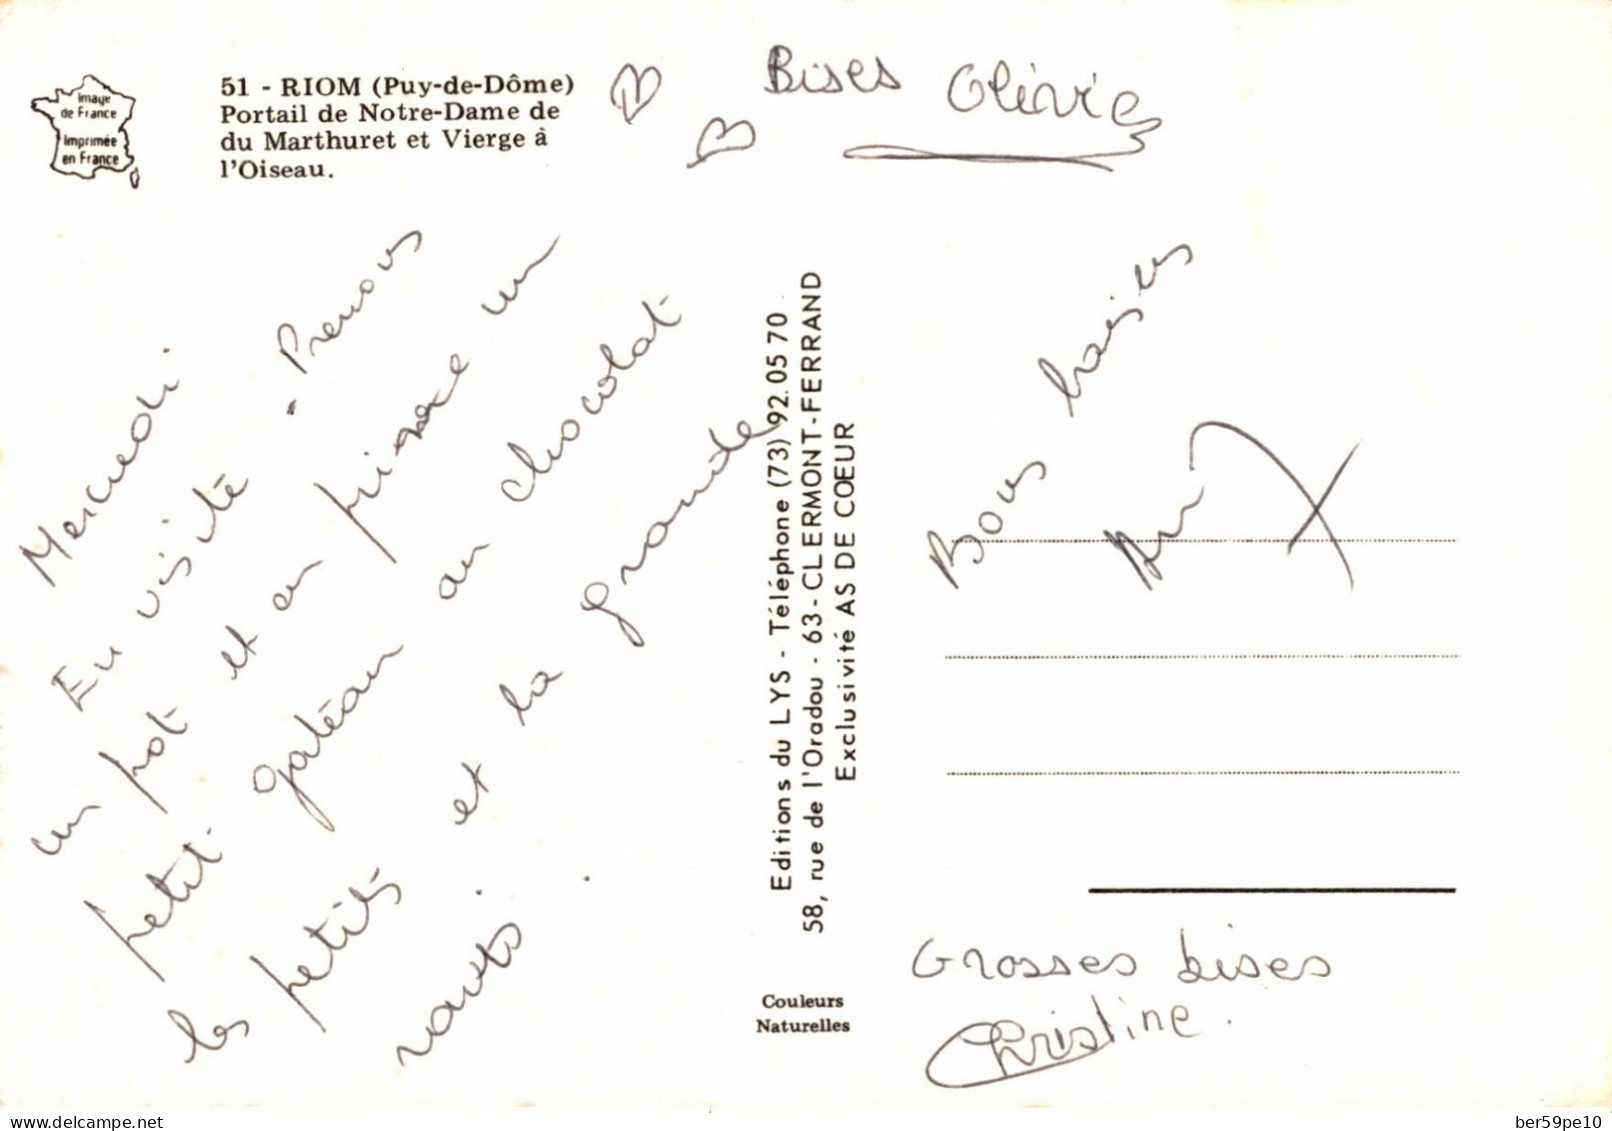 51 - RIOM (Puy-de-Dôme)
Portail de Notre-Dame de
du Marthuret et Vierge à
l'Oiseau.
Image
de France
Imprimée
en France
Bises Olivie
Mercredi
En visite . Prenons
un pot et en prime un
petit gatêau au chocolat
les petits et la grande
Editions du LYS - Téléphone (73) 92.05 70
58, rue de l'Oradou - 63 - CLERMONT-FERRAND
Exclusivité AS DE COEUR
Couleurs
Naturelles
Bons baisers
Grosses bises
Christine.
delcampe.net
ber59pe10